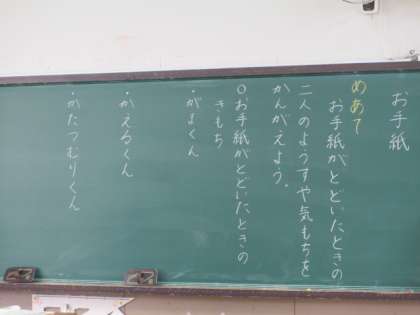 お手紙
めあて
お手紙がとどいたときの
二人のようすや気もちを
かんがえよう。
○お手紙がとどいたときの
きもち
・がまくん
・かえるくん
・かたつむりくん